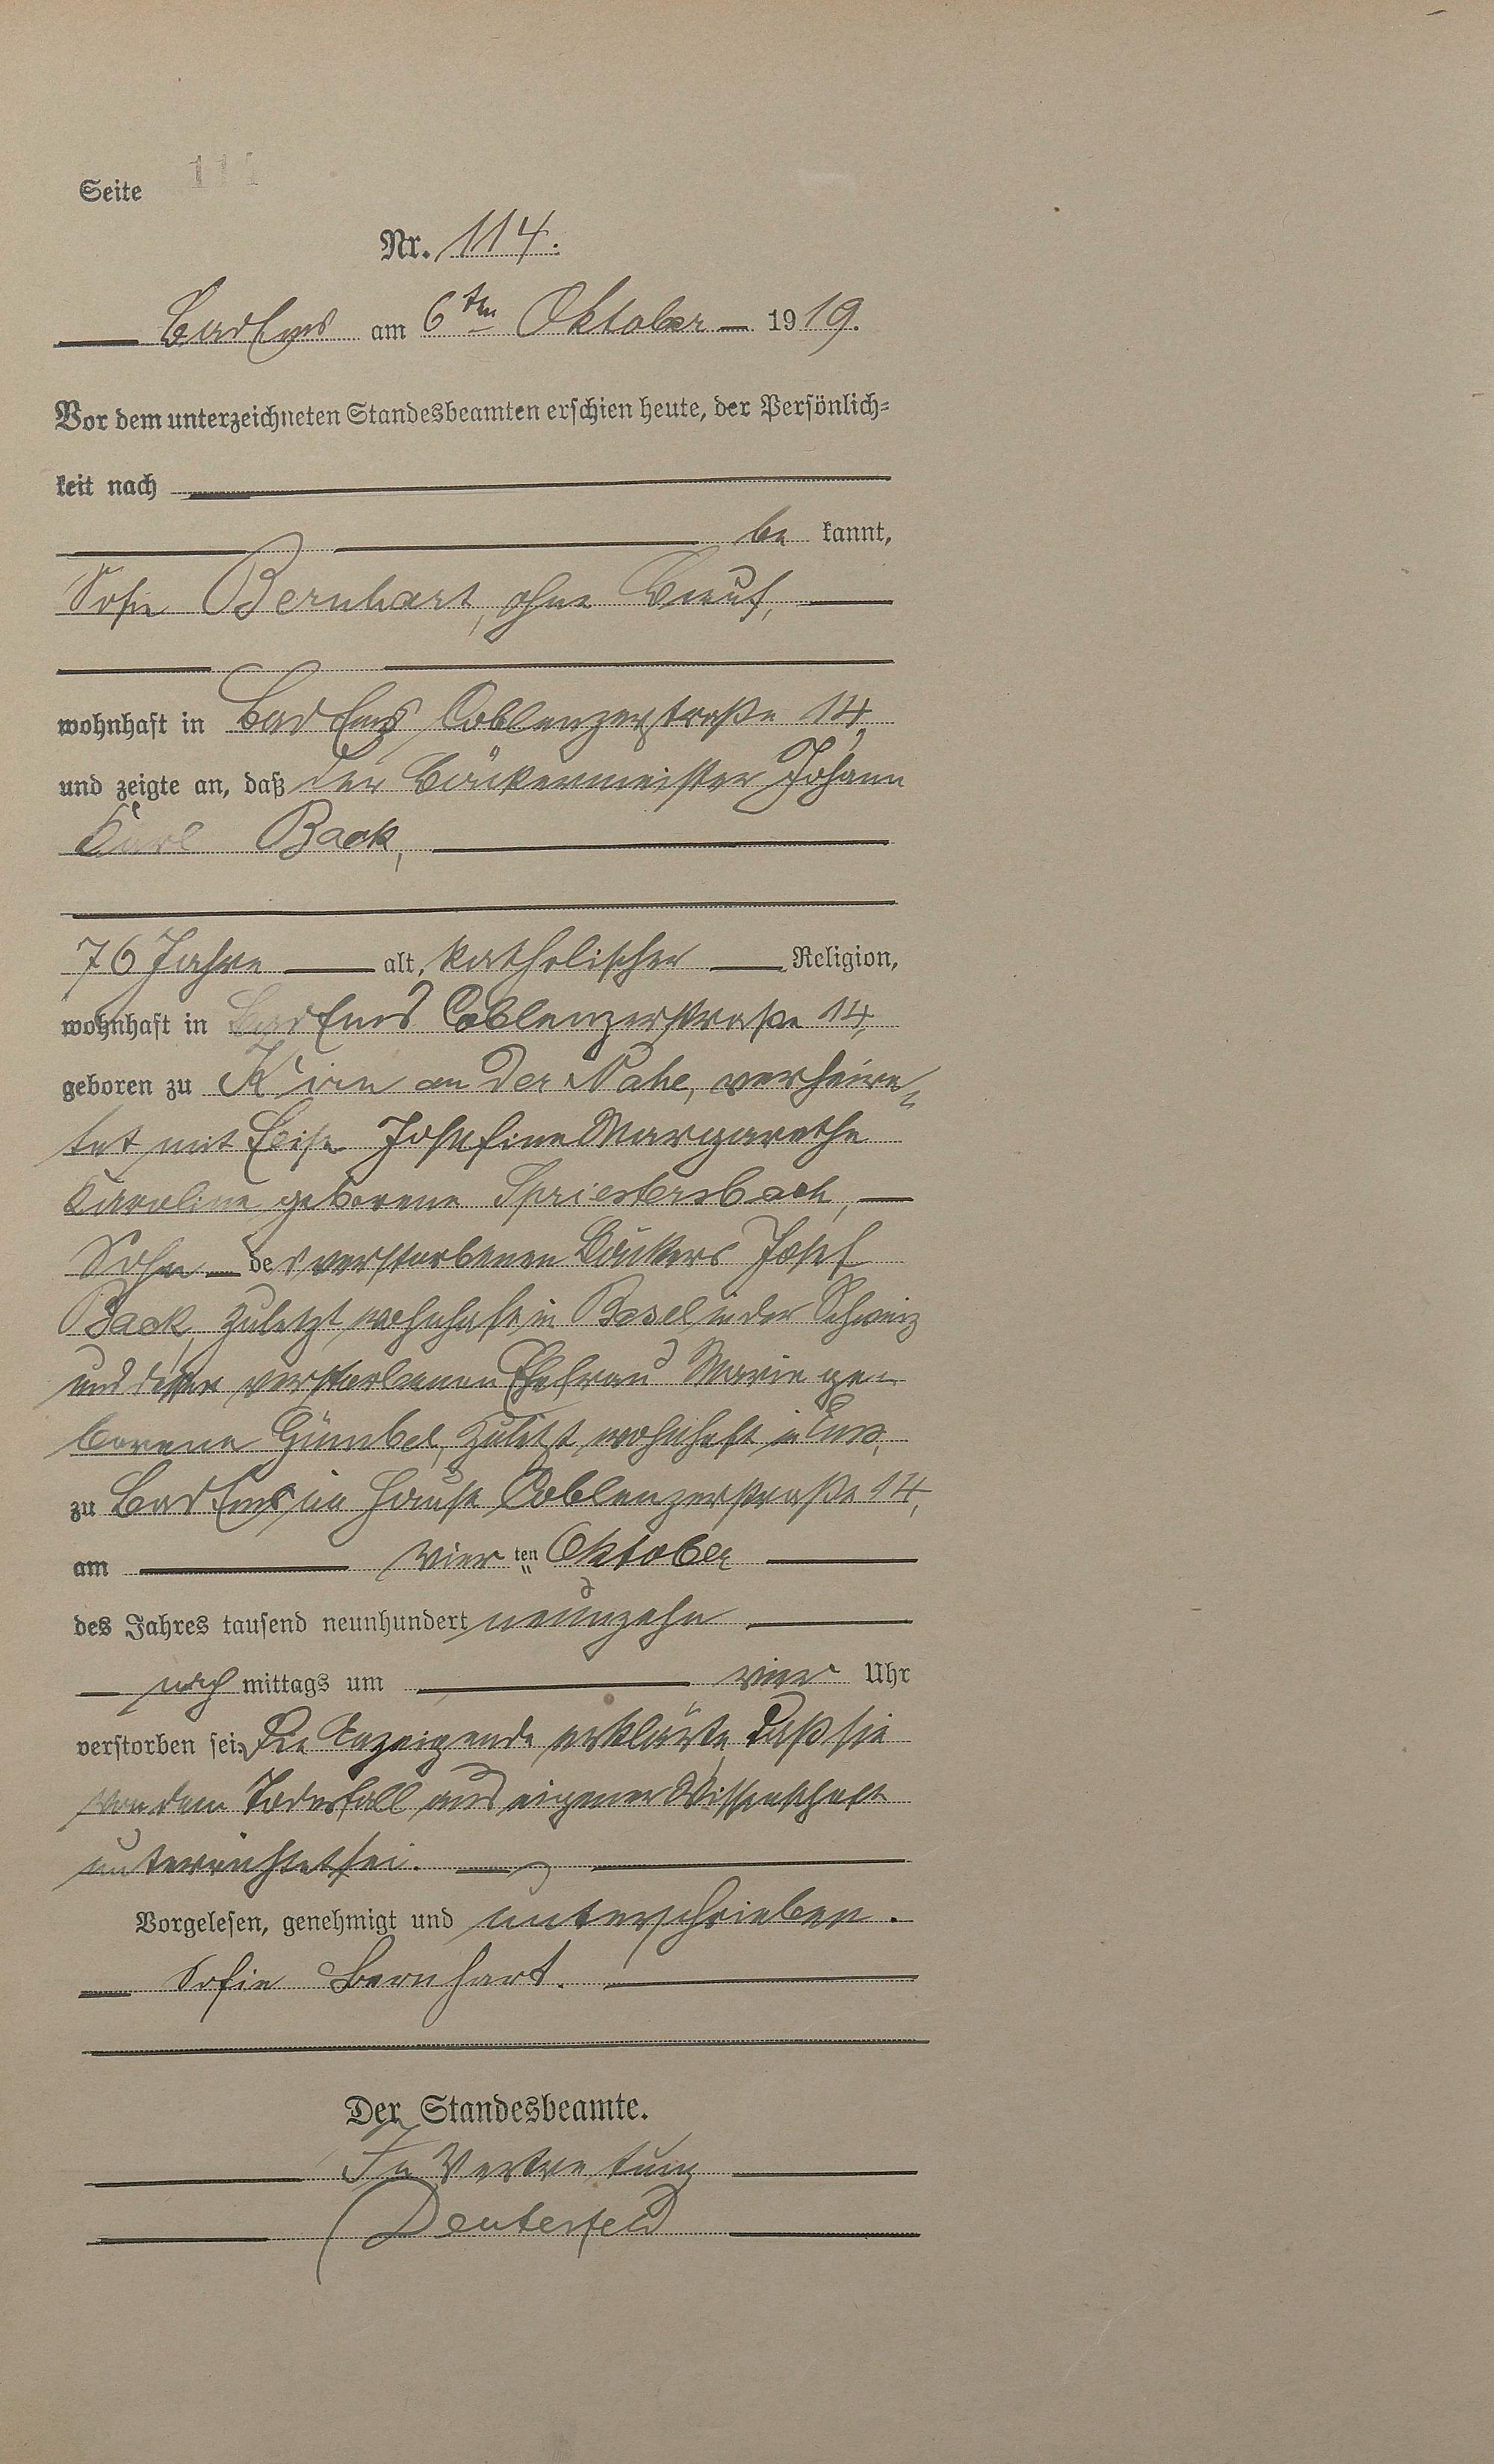 Seite 111
Nr. 114.
Bad Ems am 6ten Oktober 1919.
Vor dem unterzeichneten Standesbeamten erschien heute, der Persönlich-
keit nach
be kannt,
Sofie Bernhart, ohne Beruf,
wohnhaft in Bad Ems Coblenzerstraße 14,
und zeigte an, daß der Bäckermeister Johann
Karl Back,
76 Jahre alt, katholischer Religion,
wohnhaft in Bad Ems Coblenzerstraße 14,
geboren zu Kirn an der Nahe, verheira-
tet mit Josefine Margarethe
Karoline geborene Spriestersbach,
Sohn des verstorbenen Bäckers Josef
Back, zuletzt wohnhaft in Basel in der Schweiz
und dessen verstorbenen Ehefrau Marie ge-
borene Gümbel, zuletzt wohnhaft in Ems,
zu Bad Ems im Hause Coblenzerstraße 14,
am vier ten Oktober
des Jahres tausend neunhundert neunzehn
nach mittags um vier Uhr
verstorben sei. Die Anzeigende erklärte, daß sie
von dem Todesfall aus eigener Wissenschaft
unterrichtet sei.
Vorgelesen, genehmigt und unterschrieben.
Sofie Bernhart.
Der Standesbeamte.
In Vertretung